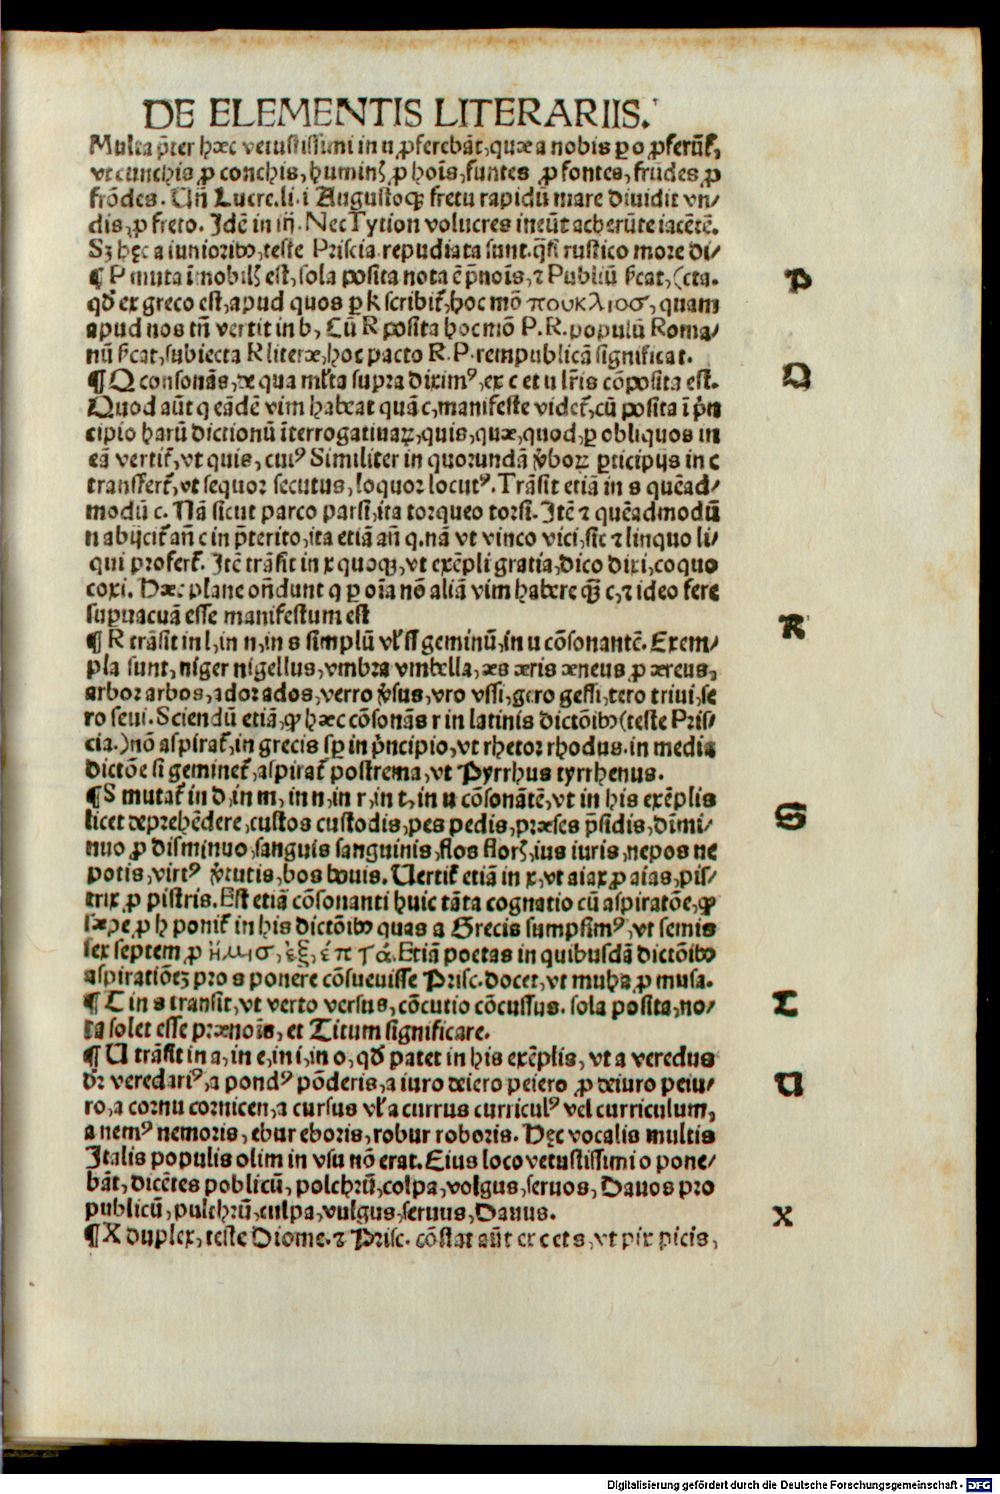 DE ELEMENTIS LITERARIIS.
Multa p̄ter hæc vetustissimi in u ꝓferebāt, quæ a nobis ꝑ o ꝓferūt̃,
vt cunchis ꝓ conchis, huminꝭ ꝓ hoīs, funtes ꝓ fontes, frūdes ꝓ
frōdes. Un̄ Lucre. li. i Augustoqꝫ fretu rapidū mare diuidit vn/
dis, ꝓ freto. Idē in iij. Nec Tytion volucres ineūt acherūte iacētē.
Sꝫ hęc a iunioribꝰ, teste Priscia. repudiata sunt. qͣsi rustico more di/
¶ P muta īmobilꝭ est, sola posita nota ē p̄noīs, ⁊ Publiū ſcat, (cta.
qḋ ex greco est, apud quos ꝑ k scribit̃, hoc mō πουκλιοσ, quam
apud nos tn̄ vertit in b, Cū R posita hoc mō P. R. populū Roma/
nū ſcat, subiecta R literæ, hoc pacto R. P. rempublicā significat.
¶ Q consonās, de qua ml̃ta supra diximꝰ, ex c et u lr̄is cōposita est.
Quod aūt q eādē vim habeat quā c, manifeste videt̃, cū posita ī p̄n
cipio harū dictionū īterrogatiuaꝝ, quis, quæ, quod, ꝑ obliquos in
eā vertit̃, vt quis, cuiꝰ Similiter in quorundā v̄boꝝ ꝑticipijs in c
transfert̃, vt sequor secutus, loquor locutꝰ. Trāsit etiā in s quēad/
modū c. Nā sicut parco parsi, ita torqueo torsi. Itē ⁊ quēadmodū
n abijcit̃ an̄ c in p̄terito, ita etiā an̄ q. nā vt vinco vici, sic ⁊ linquo li/
qui profert̃. Itē trāsit in x quoqꝫ, vt exēpli gratia, dico dixi, coquo
coxi. Hæc plane on̄dunt q ꝑ oīa nō aliā vim habere qꝫ̄ c, ⁊ ideo fere
supuacuā esse manifestum est
¶ R trāsit in l, in n, in s simplū vl̃ ss geminū, in u cōsonantē. Exem/
pla sunt, niger nigellus, vmbra vmbella, æs æris æneus ꝓ æreus,
arbor arbos, ador ados, verro v̄sus, vro vssi, gero gessi, tero triui, se
ro seui. Sciendū etiā, ꝙ hæc cōsonās r in latinis dictōibꝰ (teste Pris/
cia.) nō aspirat̃, in grecis sꝑ in p̄ncipio, vt rhetor rhodus. in media
dictōe si geminet̃, aspirat̃ postrema, vt Pyrrhus tyrrhenus.
¶ S mutat̃ in d, in m, in n, in r, in t, in u cōsonātē, vt in his exēplis
licet deprehēdere, custos custodis, pes pedis, præses p̄sidis, dīmi/
nuo ꝓ disminuo, sanguis sanguinis, flos florꝭ, ius iuris, nepos ne
potis, virtꝰ v̄tutis, bos bouis. Uertit̃ etiā in x, vt aiax ꝓ aias, pis/
trix ꝓ pistris. Est etiā cōsonanti huic tāta cognatio cū aspiratōe, ꝙ
sæpe ꝓ h ponit̃ in his dictōibꝰ quas a Grecis sumpsimꝰ, vt semis
sex septem ꝓ ἥμισ, ἑξ, ἑπτά. Etiā poetas in quibusdā dictōibꝰ
aspirationēꝫ pro s ponere cōsueuisse Prisc. docet, vt muha ꝓ musa.
¶ T in s transit, vt verto versus, cōcutio cōcussus. sola posita, no/
ta solet esse prænoīs, et Titum significare.
¶ U trāsit in a, in e, in i, in o, qḋ patet in his exēplis, vt a veredus
dr̄ veredariꝰ, a pondꝰ pōderis, a iuro deiero peiero ꝓ deiuro peiu/
ro, a cornu cornicen, a cursus vl̃ a currus curriculꝰ vel curriculum,
a nemꝰ nemoris, ebur eboris, robur roboris. Hęc vocalis multis
Italis populis olim in vsu nō erat. Eius loco vetustissimi o pone/
bāt, dicētes poblicū, polchrū, colpa, volgus, seruos, Dauos pro
publicū, pulchrū, culpa, vulgus, seruus, Dauus.
¶ X duplex, teste Diome. ⁊ Prisc. cōstat aūt ex c et s, vt pix picis,
P
Q
R
S
T
U
X
Digitalisierung gefördert durch die Deutsche Forschungsgemeinschaft - DFG